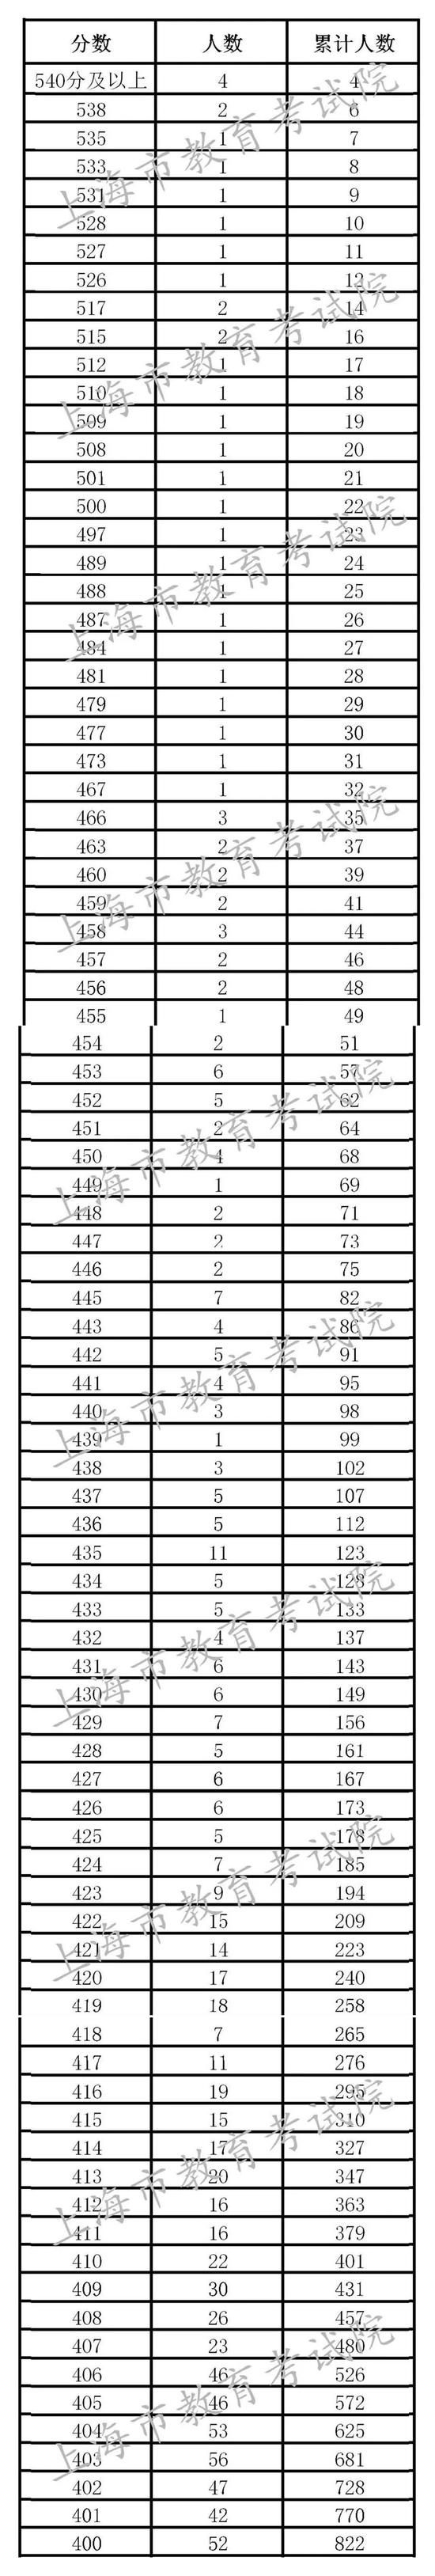 分数 人数 累计人数
540分及以上 4 4
538 2 6
535 1 7
533 1 8
531 1 9
528 1 10
527 1 11
526 1 12
517 2 14
515 2 16
512 1 17
510 1 18
509 1 19
508 1 20
501 1 21
500 1 22
497 1 23
489 1 24
488 1 25
487 1 26
484 1 27
481 1 28
479 1 29
477 1 30
473 1 31
467 1 32
466 3 35
463 2 37
460 2 39
459 2 41
458 3 44
457 2 46
456 2 48
455 1 49
454 2 51
453 6 57
452 5 62
451 2 64
450 4 68
449 1 69
448 2 71
447 2 73
446 2 75
445 7 82
443 4 86
442 5 91
441 4 95
440 3 98
439 1 99
438 3 102
437 5 107
436 5 112
435 11 123
434 5 128
433 5 133
432 4 137
431 6 143
430 6 149
429 7 156
428 5 161
427 6 167
426 6 173
425 5 178
424 7 185
423 9 194
422 15 209
421 14 223
420 17 240
419 18 258
418 7 265
417 11 276
416 19 295
415 15 310
414 17 327
413 20 347
412 16 363
411 16 379
410 22 401
409 30 431
408 26 457
407 23 480
406 46 526
405 46 572
404 53 625
403 56 681
402 47 728
401 42 770
400 52 822
上海市教育考试院
上海市教育考试院
上海市教育考试院
上海市教育考试院
上海市教育考试院
上海市教育考试院
上海市教育考试院
上海市教育考试院
上海市教育考试院
上海市教育考试院